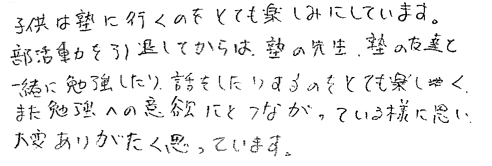 子供は塾に行くのをとても楽しみにしています。
部活動を引退してからは、塾の先生、塾の友達と
一緒に勉強したり、話をしたりするのをとても楽しく、
また勉強への意欲にとつながっている様に思い、
大変ありがたく思っています。